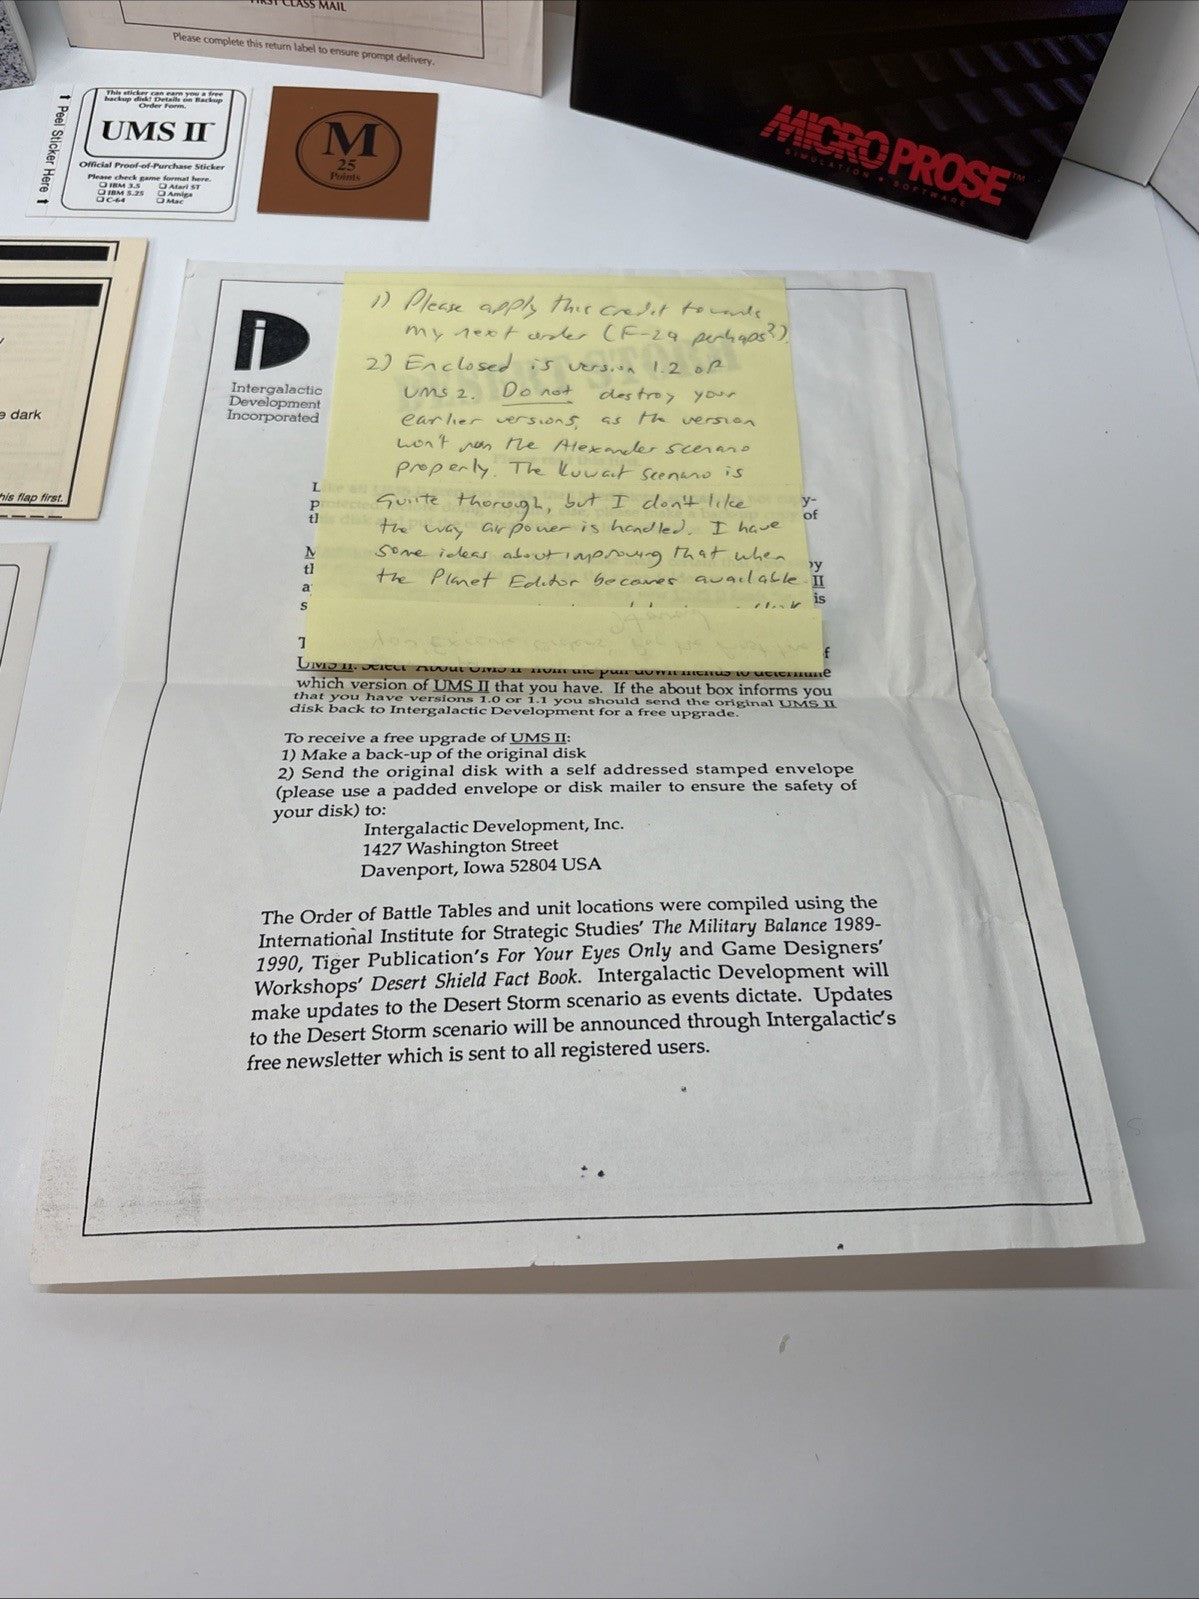 FIRST CLASS MAIL
Please complete this return label to ensure prompt delivery.
Peel Sticker Here
This sticker can earn you a free
backup disk! Details on Backup
Order Form.
UMS II™
Official Proof-of-Purchase Sticker
Please check game format here.
IBM 3.5 Atari ST
IBM 5.25 Amiga
C-64 Mac
M
25
Points
MICROPROSE™
SIMULATION • SOFTWARE
e dark
his flap first.
iD
Intergalactic
Development
Incorporated
1) Please apply this credit towards
my next order (F-29 perhaps?).
2) Enclosed is version 1.2 of
UMS 2. Do not destroy your
earlier versions, as the version
won't run the Alexander scenario
properly. The Kuwait scenario is
quite thorough, but I don't like
the way airpower is handled. I have
some ideas about improving that when
the Planet Editor becomes available.
UMS II. Select "About UMS II" from the pull down menus to determine
which version of UMS II that you have. If the about box informs you
that you have versions 1.0 or 1.1 you should send the original UMS II
disk back to Intergalactic Development for a free upgrade.
To receive a free upgrade of UMS II:
1) Make a back-up of the original disk
2) Send the original disk with a self addressed stamped envelope
(please use a padded envelope or disk mailer to ensure the safety of
your disk) to:
Intergalactic Development, Inc.
1427 Washington Street
Davenport, Iowa 52804 USA
The Order of Battle Tables and unit locations were compiled using the
International Institute for Strategic Studies' The Military Balance 1989-
1990, Tiger Publication's For Your Eyes Only and Game Designers'
Workshops' Desert Shield Fact Book. Intergalactic Development will
make updates to the Desert Storm scenario as events dictate. Updates
to the Desert Storm scenario will be announced through Intergalactic's
free newsletter which is sent to all registered users.